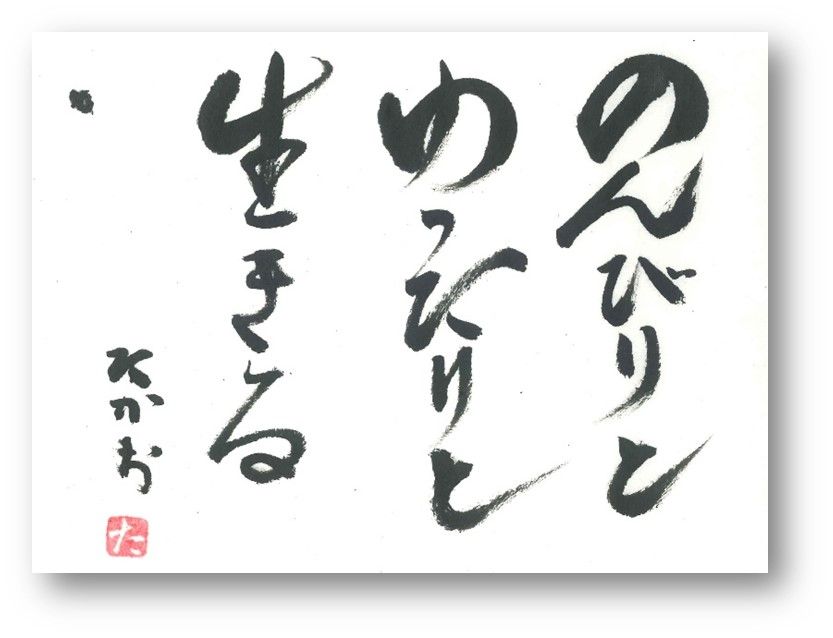 のんびりと
ゆったりと
生きる
たかお
た